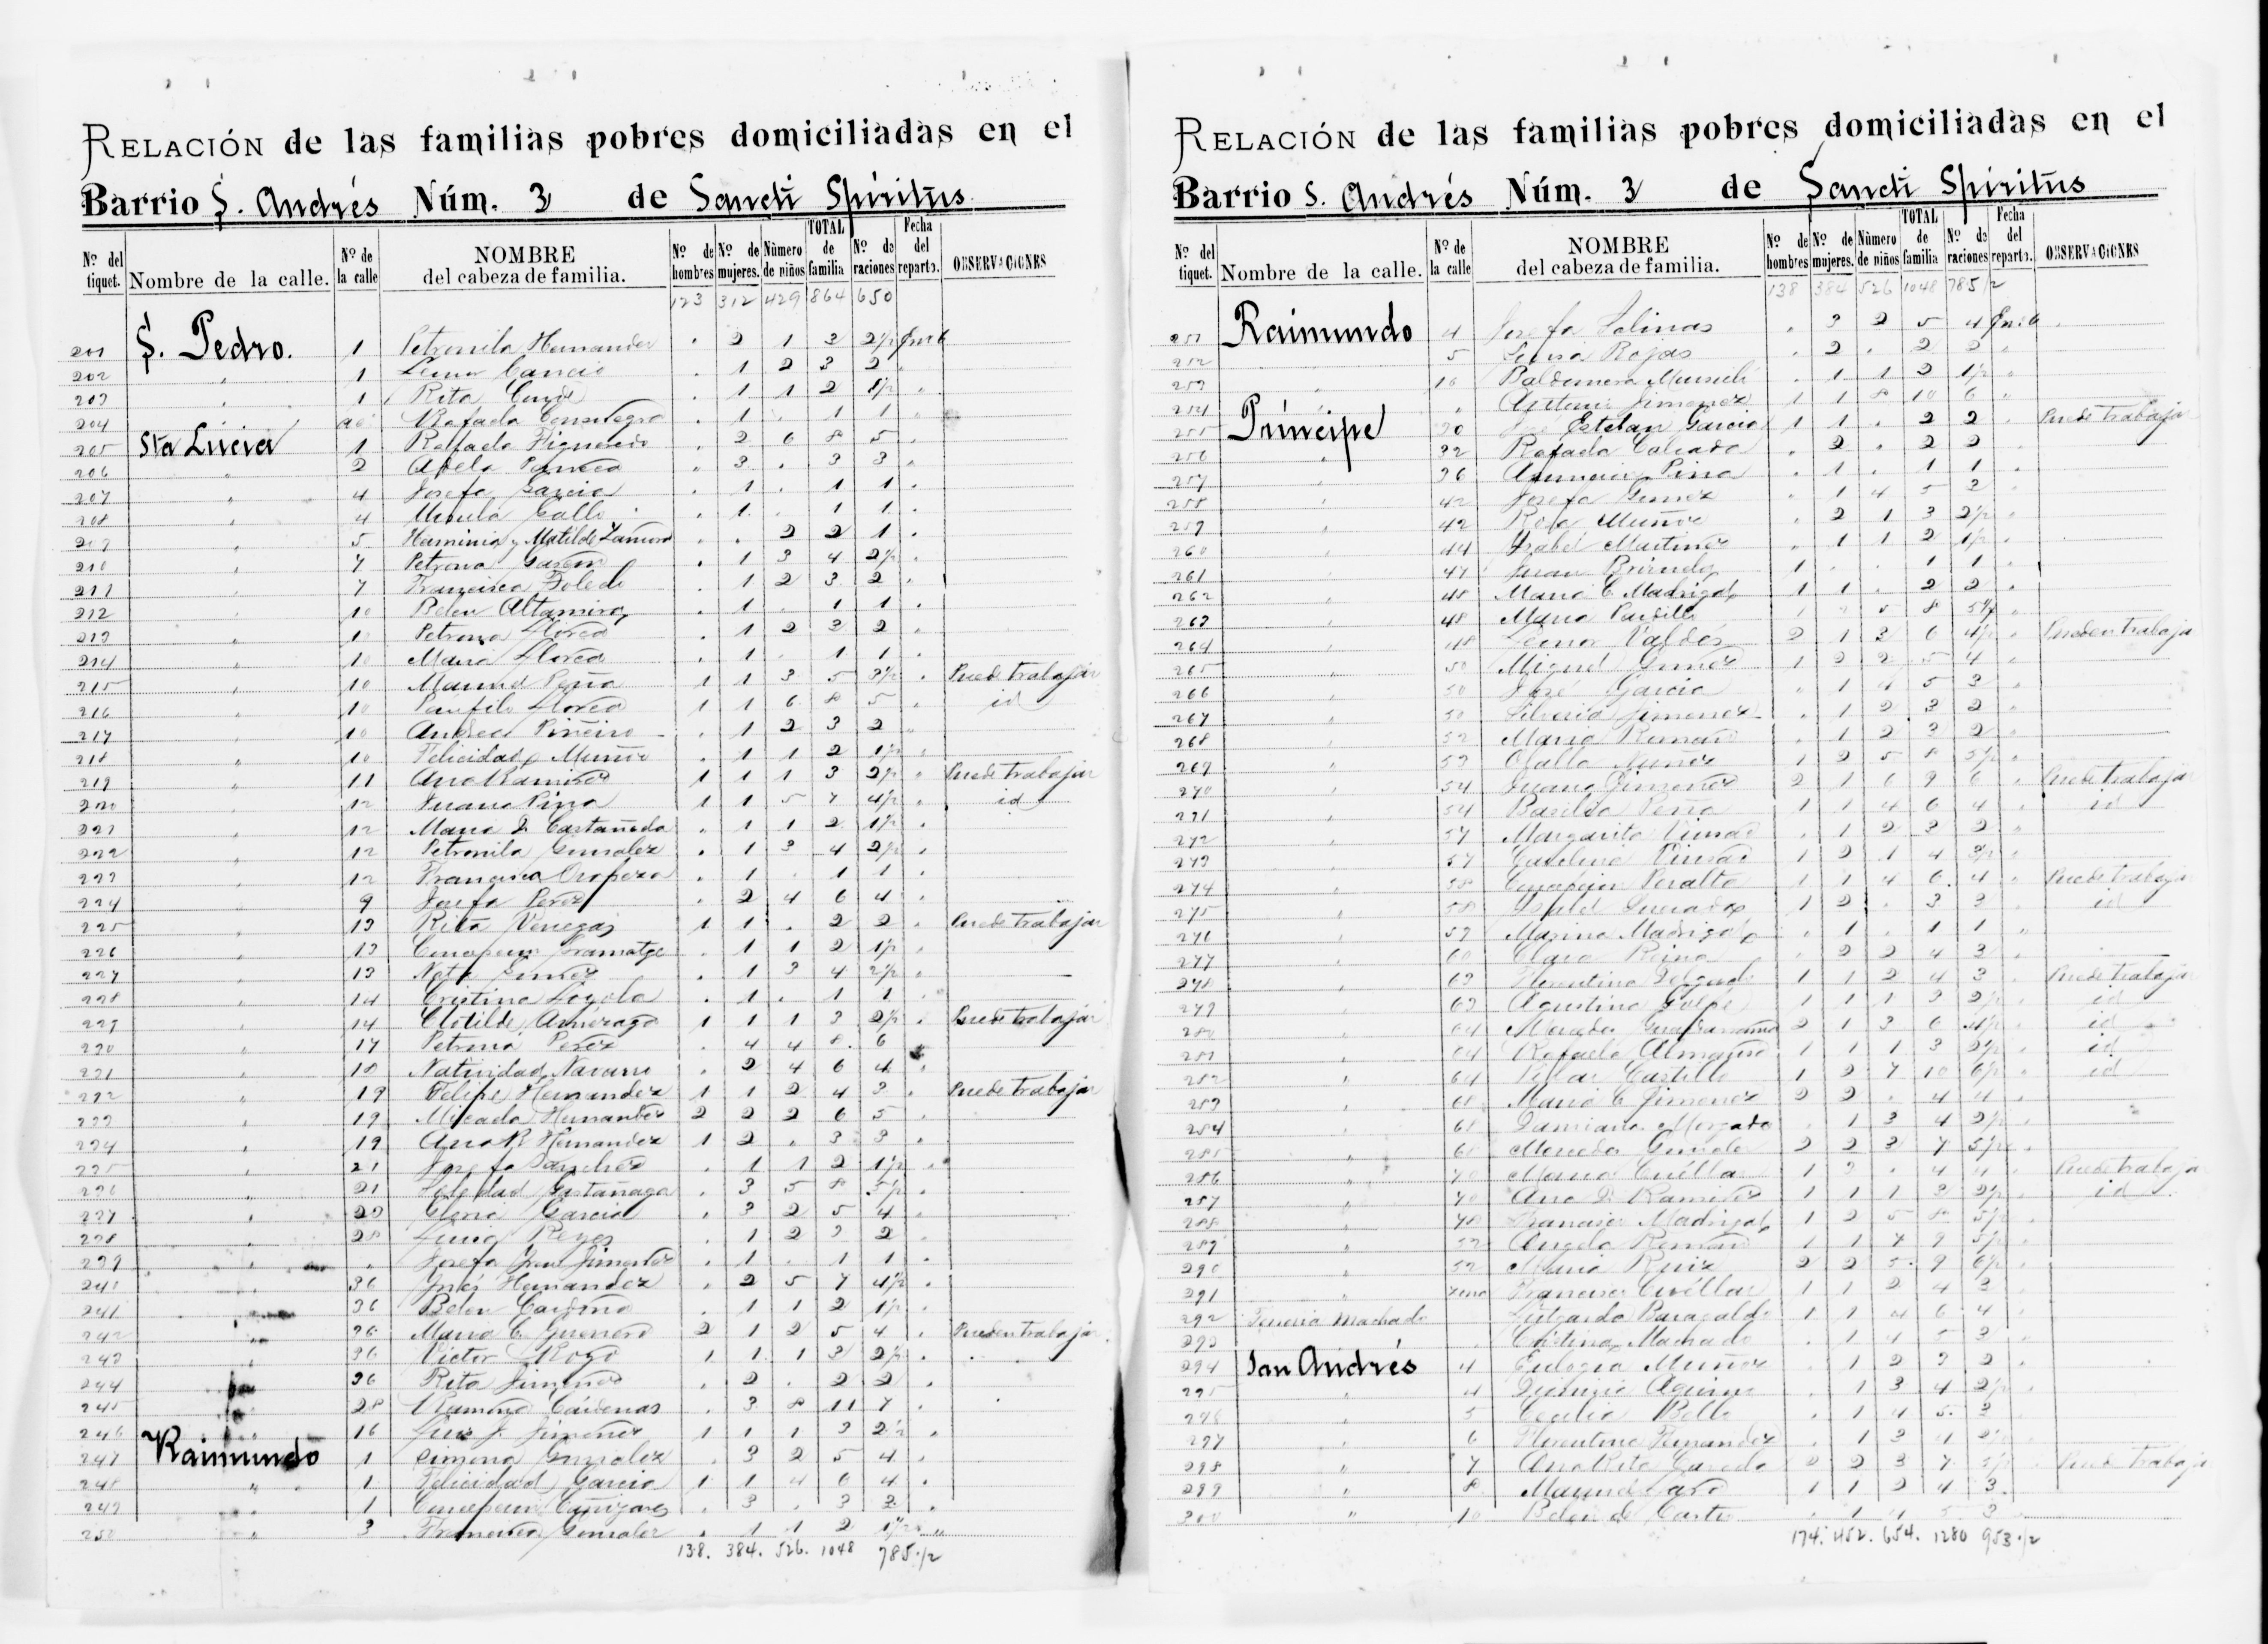 RELACIÓN de las familias pobres domiciliadas en el
Barrio S. Andrés Núm. 3 de Sancti Spiritus
Nº del tiquet. Nombre de la calle. Nº de la calle NOMBRE del cabeza de familia. Nº de hombres Nº de mujeres. Número de niños TOTAL de familia Nº de raciones Fecha del reparto. OBSERVACIONES
123 312 429 864 650
201 S. Pedro. 1 Petronila Hernandez . 2 1 3 2 1/2
202 " 1 Cancio . 1 2 3 2
203 " 1 Rita . 1 1 2 1 1/2
204 Rafaela Consuegra . 1 . 1 1
205 Sta Lucia 1 Rafaela Figueredo . 2 6 8 5
206 " 2 Adela . 3 . 3 3
207 " 4 Josefa Garcia . 1 . 1 1
208 " 4 Ursula Gallo . 1 . 1 1
209 " 5 Herminia y Matilde Zamora . . 2 2 1
210 " 7 Petrona . 1 3 4 2 1/2
211 " 7 Francisca Toledo . 1 2 3 2
212 " 10 Belen Altamira . 1 . 1 1
213 " 10 Petrona Llorca . 1 2 3 2
214 " 10 Maria Llorca . 1 . 1 1
215 " 10 Manuel Peña 1 1 3 5 3 1/2 Puede trabajar
216 " 10 Panfilo Llorca 1 1 6 8 5 id
217 " 10 Andrea Piñeiro . 1 2 3 2
218 " 10 Felicidad Muñoz . 1 1 2 1 1/2
219 " 11 Ana Ramirez 1 1 1 3 2 1/2 Puede trabajar
220 " 12 Juana Pina 1 1 5 7 4 1/2 id
221 " 12 Maria D. Castañeda . 1 1 2 1 1/2
222 " 12 Petronila Gonzalez . 1 3 4 2 1/2
223 " 12 Francisca Oropeza . 1 . 1 1
224 " 9 Josefa Perez . 2 4 6 4
225 " 13 Rita Venegas 1 1 . 2 2 Puede trabajar
226 " 13 Gramatge . 1 1 2 1 1/2
227 " 13 Gomez . 1 3 4 2 1/2
228 " 14 Cristina Loyola . 1 . 1 1
229 " 14 Clotilde 1 1 1 3 2 1/2 Puede trabajar
230 " 17 Petrona Perez . 4 4 8 6
231 " 18 Natividad Navarro . 2 4 6 4
232 " 19 Felipe Hernandez 1 1 2 4 3 Puede trabajar
233 " 19 Micaela Hernandez 2 2 2 6 5
234 " 19 Ana R. Hernandez 1 2 . 3 3
235 " 21 Josefa Sanchez . 1 1 2 1 1/2
236 " 21 Soledad Gastañaga . 3 5 8 5 1/2
237 " Gloria Garcia . 3 2 5 4
238 " 28 Reyes . 1 2 3 2
239 " Josefa Jimenez . 1 . 1 1
240 " 36 Ynés Hernandez . 2 5 7 4 1/2
241 " 36 Belen . 1 1 2 1 1/2
242 " 36 Maria C. Guerrero 2 1 2 5 4 Pueden trabajar
243 36 Victor Rojo 1 1 1 3 2 1/2
244 36 Rita Jimenez . 2 . 2 2
245 28 Ramona Cárdenas . 3 8 11 7
246 " 16 J. Jimenez 1 1 1 3 2 1/2
247 Raimundo 1 Simona Gonzalez . 3 2 5 4
248 " 1 Felicidad Garcia 1 1 4 6 4
249 " 1 Concepcion Cañizares . 3 . 3 3
250 " 3 Francisca Gonzalez . 1 1 2 1 1/2
138. 384. 526. 1048 785 1/2
RELACIÓN de las familias pobres domiciliadas en el
Barrio S. Andrés Núm. 3 de Sancti Spiritus
Nº del tiquet. Nombre de la calle. Nº de la calle NOMBRE del cabeza de familia. Nº de hombres Nº de mujeres. Número de niños TOTAL de familia Nº de raciones Fecha del reparto. OBSERVACIONES
138 384 526 1048 785 1/2
251 Raimundo 4 Josefa Salinas . 3 2 5 4
252 5 Rojas . 2 . 2 2
253 16 Baldomera . 1 1 2 1 1/2
254 " Jimenez 1 1 8 10 6
255 Príncipe José Esteban Garcia 1 1 . 2 2 Puede trabajar
256 " 32 Rafaela Calzada . 2 . 2 2
257 " 36 Asuncion Pina . 1 . 1 1
258 " 42 Josefa Gomez . 1 4 5 3
259 " 42 Rosa Muñoz . 2 1 3 2 1/2
260 " 44 Ysabel Martinez . 1 1 2 1 1/2
261 " 47 Juan 1 . . 1 1
262 " 48 Maria C. Madrigal 1 1 . 2 2
263 " 48 Maria 5 8
264 " 48 Leonor Valdés 2 1 3 6 4 1/2 Pueden trabajar
265 " 50 Miguel Gomez 1 2 2 5 4
266 " 50 José Garcia . 1 4 5 3
267 " 50 Jimenez . 1 2 3 2
268 " 52 Maria Romero . 1 2 3 2
269 " 53 Muñoz 1 2 5 8 5 1/2
270 " 54 Juana Jimenez 2 1 6 9 6 Puede trabajar
271 " 54 Basilia Peña 1 1 4 6 4 id
272 " 57 Margarita . 1 2 3 2
273 " 57 Carolina 1 2 1 4 3 1/2
274 " 58 Concepcion Peralta 1 1 4 6 4 Puede trabajar
275 " 58 Ysabel 1 2 . 3 3 id
276 " 59 Marina Madrigal . 1 . 1 1
277 " 60 Clara Reina . 2 2 4 3
278 " 63 Florentina Delgado 1 1 2 4 3 Puede trabajar
279 " 63 Agustina 1 1 1 3 2 1/2 id
280 " 64 Mercedes 2 1 3 6 4 1/2 id
281 " 64 Rafaela 1 1 1 3 2 1/2 id
282 " 64 Pilar Castillo 1 2 7 10 6 1/2 id
283 " 68 Maria C. Jimenez 2 2 . 4 4
284 " 68 Damiana Morgado . 1 3 4 2 1/2
285 " Mercedes 2 2 3 7 5 1/2
286 " 70 Maria Cuéllar 1 3 . 4 4 Puede trabajar
287 " 70 Ana D. Ramirez 1 1 1 3 2 1/2 id
288 " 78 Francisca Madrigal 1 2 5 8 5 1/2
289 " 52 Angela Romero 1 1 7 9 5 1/2
290 " 52 Maria Ruiz 2 2 5 9 6 1/2
291 " Francisca Cuéllar 1 1 2 4 3
292 Teneria Machado 1 1 4 6 4
293 Cristina Machado . 1 4 5 3
294 San Andrés 4 Eulogia Muñoz . 1 2 3 2
295 " 4 Dionisia . 1 3 4 2 1/2
296 " 5 Cecilia Bello . 1 4 5 3
297 " 6 Florentina Fernandez . 1 3 4 2 1/2
298 " 7 Ana Rita 2 2 3 7 5 1/2 Puede trabajar
299 " 8 Manuel 1 1 2 4 3
300 " 10 Belén de Castro . 1 4 5 3
174. 452. 654. 1280 953 1/2